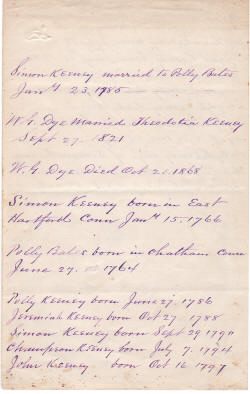 Simon Keeney married to Polly Bates
Jany 23. 1785
W. G. Dye Married Theodotia Keeney
Sept 27. 1821
W. G. Dye Died Oct 21. 1868
Simon Keeney born in East
Hartford Conn Jany 15. 1766
Polly Bates born in Chatham Conn
June 27. 1764
Polly Keeney born June 27. 1786
Jeremiah Keeney born Oct 27 1788
Simon Keeney born Sept 29 1790
Champion Keeney born July 7. 1794
John Keeney born Oct 16 1797